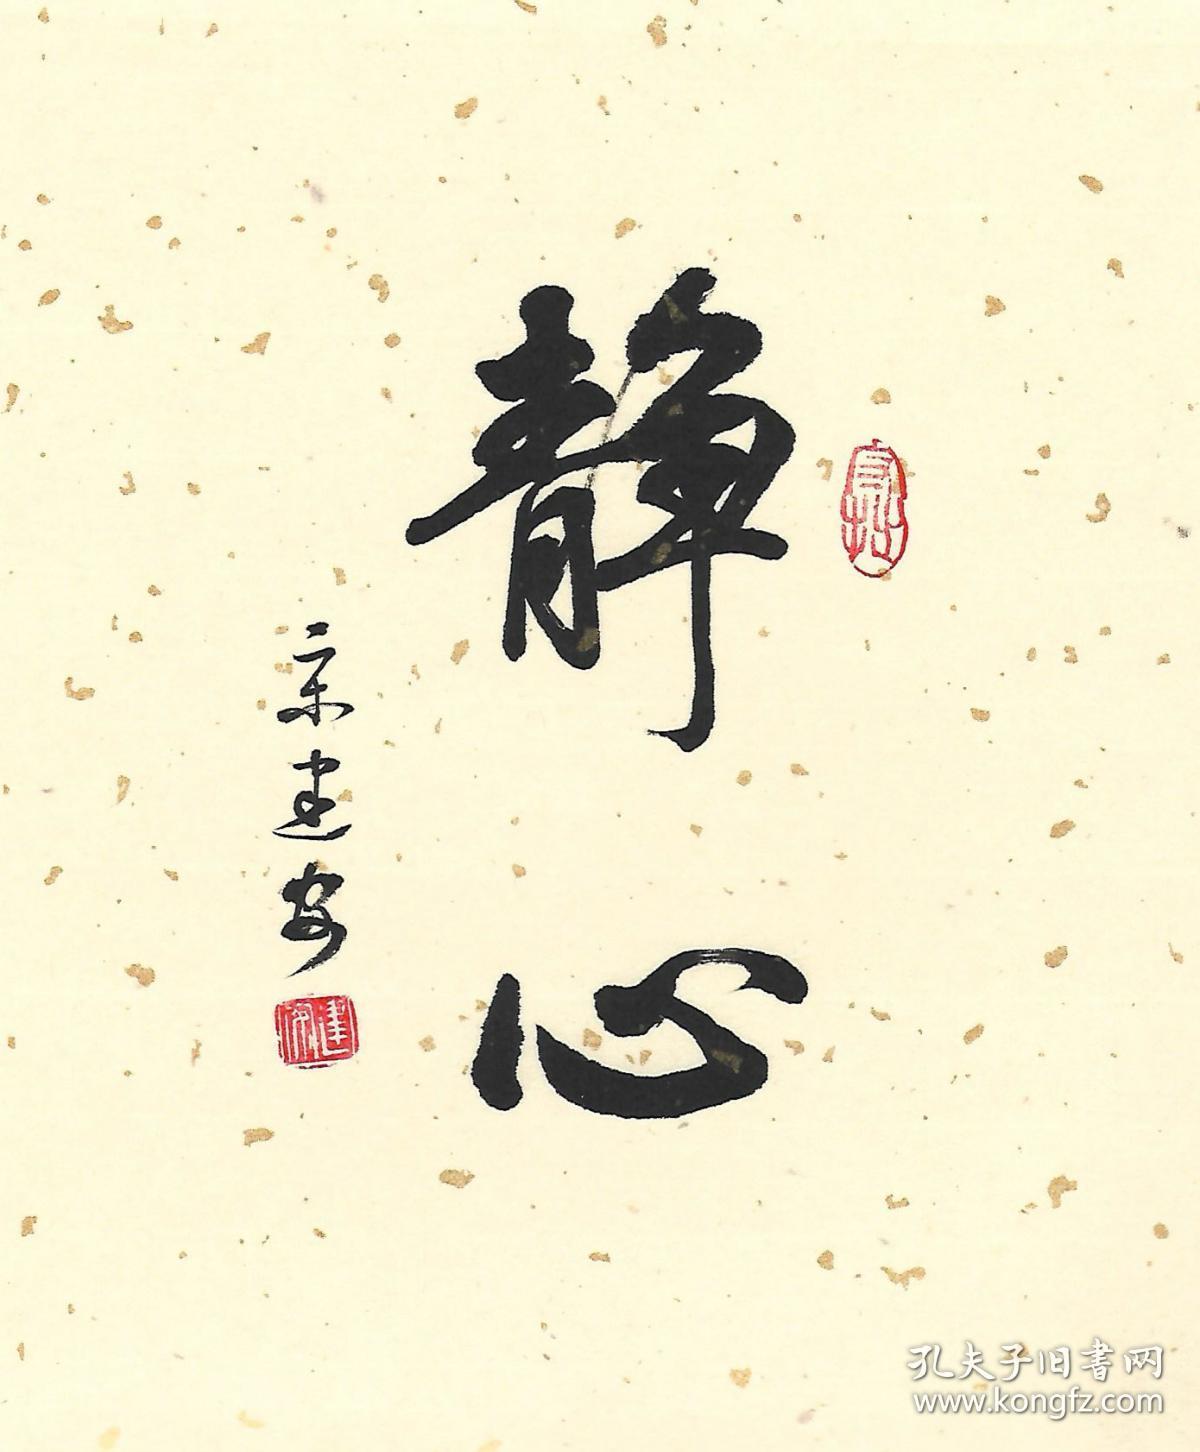 靜心
宋建安
建安
孔夫子旧书网
www.kongfz.com